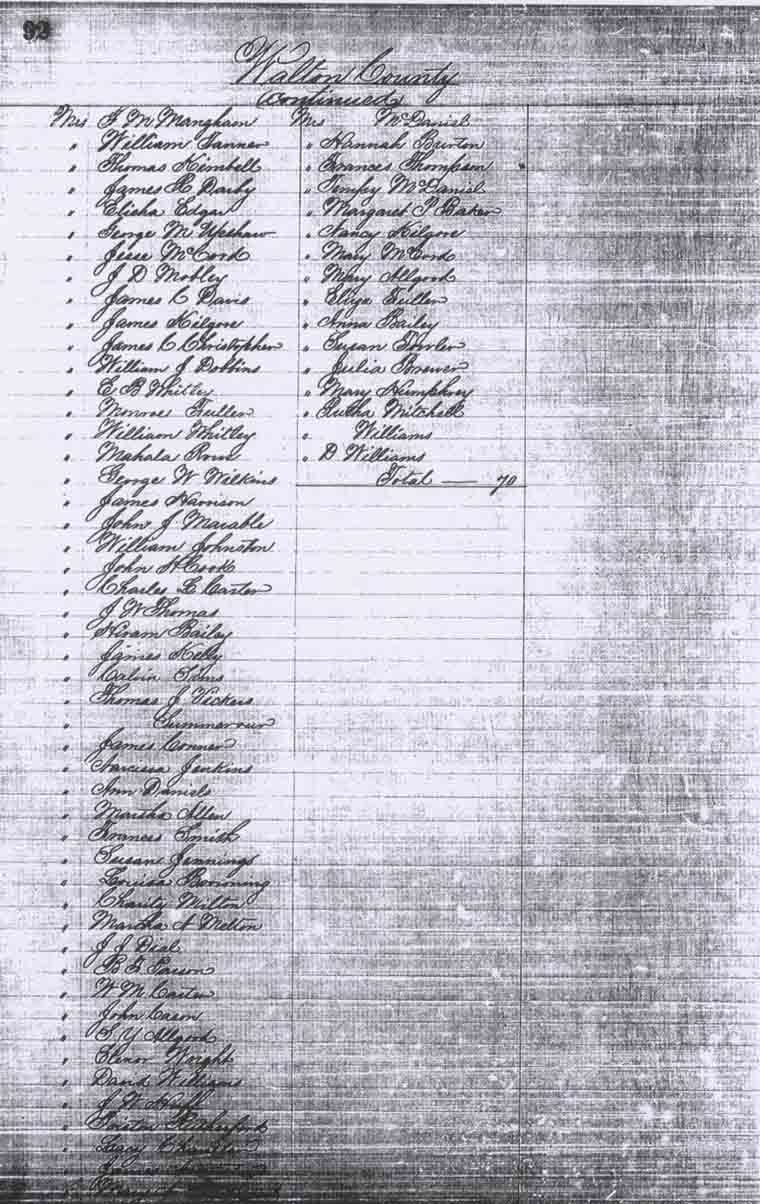 92
Walton County
(continued)
Mrs F. M Mangham
" William Tanner
" Thomas Kimbell
" James R Darby
" Elisha Edgar
" George M Upshaw
" Jesse McCord
" J D Mobley
" James C Davis
" James Kilgore
" James C Christopher
" William J Dobbins
" E B Whitley
" Monroe Fuller
" William Whitley
" Mahala
" George W Wilkins
" James Harrison
" John J Marable
" William Johnston
" John H Cook
" Charles L Carter
" J W Thomas
" Hiram Bailey
" James Kelly
" Calvin Sims
" Thomas J Vickers
" Summerour
" James Conner
" Narcissa Jenkins
" Ann Daniels
" Martha Allen
" Frances Smith
" Susan Jennings
" Louisa Browning
" Charity Milton
" Martha A Melton
" J J Dial
" B F
" W M Carter
" John Cason
" S Y Allgood
" Elinor Wright
" David Williams
" J W
"
" Lucy
" James
"
Mrs McDaniel
" Hannah Burton
" Frances Thompson
" Tempy McDaniel
" Margaret P Baker
" Nancy Kilgore
" Mary McCord
" Mary Allgood
" Eliza Fuller
" Anna Bailey
" Susan Fowler
" Julia Brewer
" Mary Humphrey
" Mitchell
" Williams
" D Williams
Total — 70